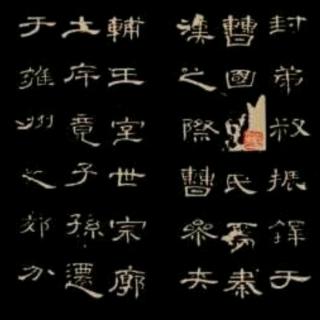 封弟叔振鐸于
曹國因氏焉秦
漢之際曹參夾
輔王室世宗廓
土斥竟子孫遷
于雍州之郊分